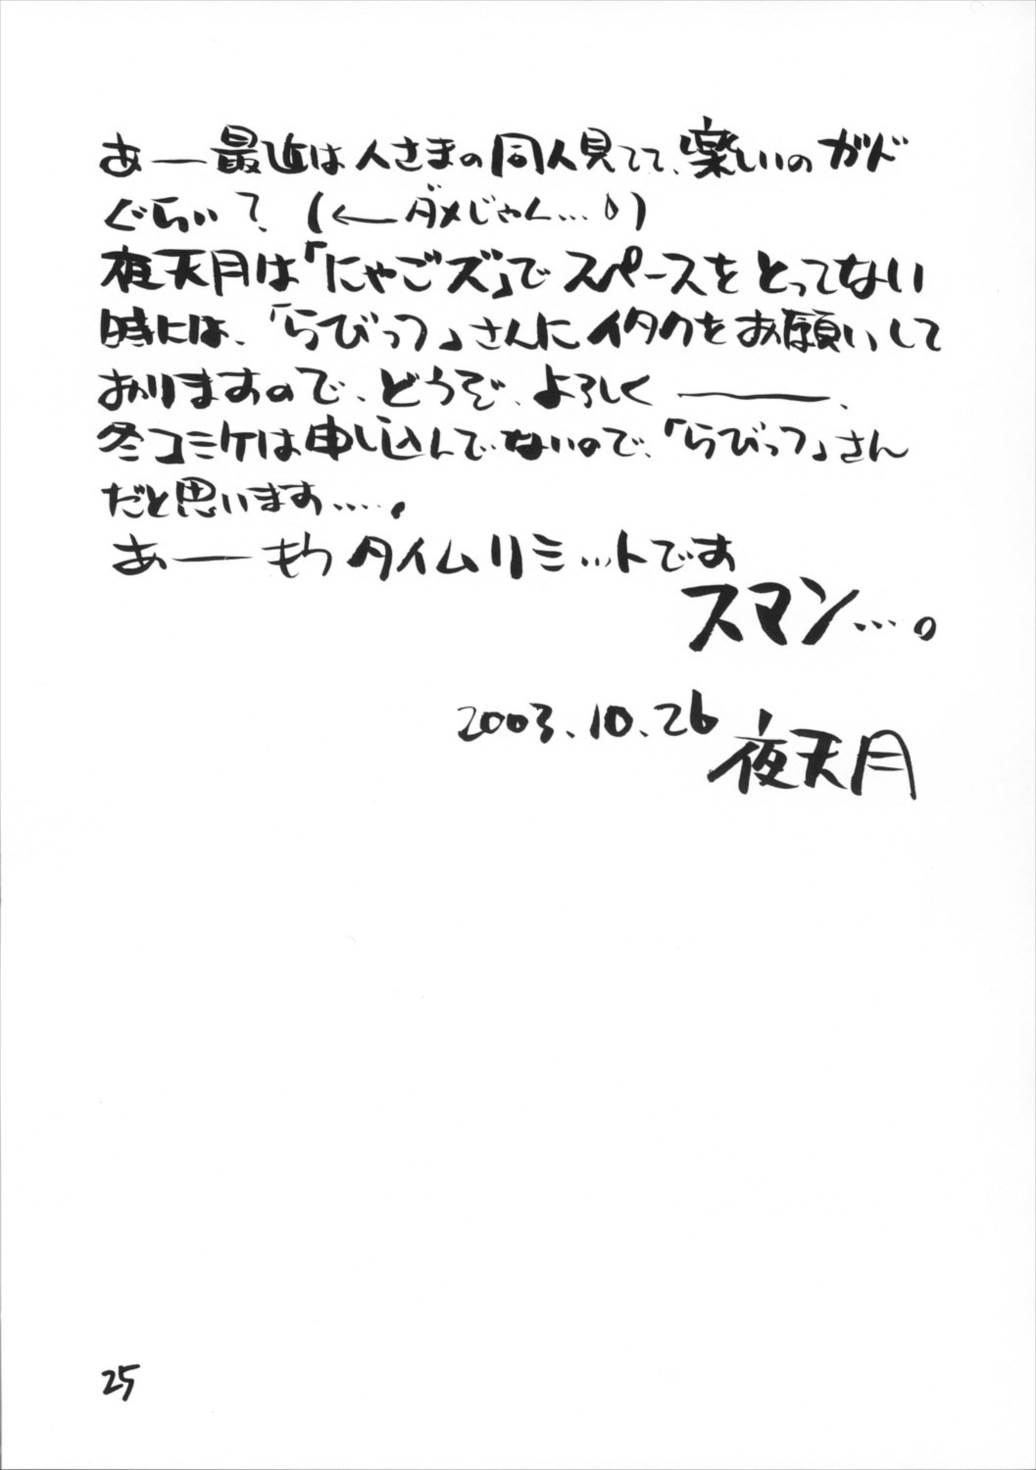 あー最近は人さまの同人見てて、楽しいのガド
ぐらい？(←ダメじゃん…)
夜天月は「にゃごズ」でスペースをとってない
時には、「らびっフ」さんにイタクをお願いして
おりますので、どうぞ、よろしくー、
冬コミケは申し込んでないので、「らびっフ」さん
だと思います……。
あーもうタイムリミットです
スマン…。
2003.10.26 夜天月
25